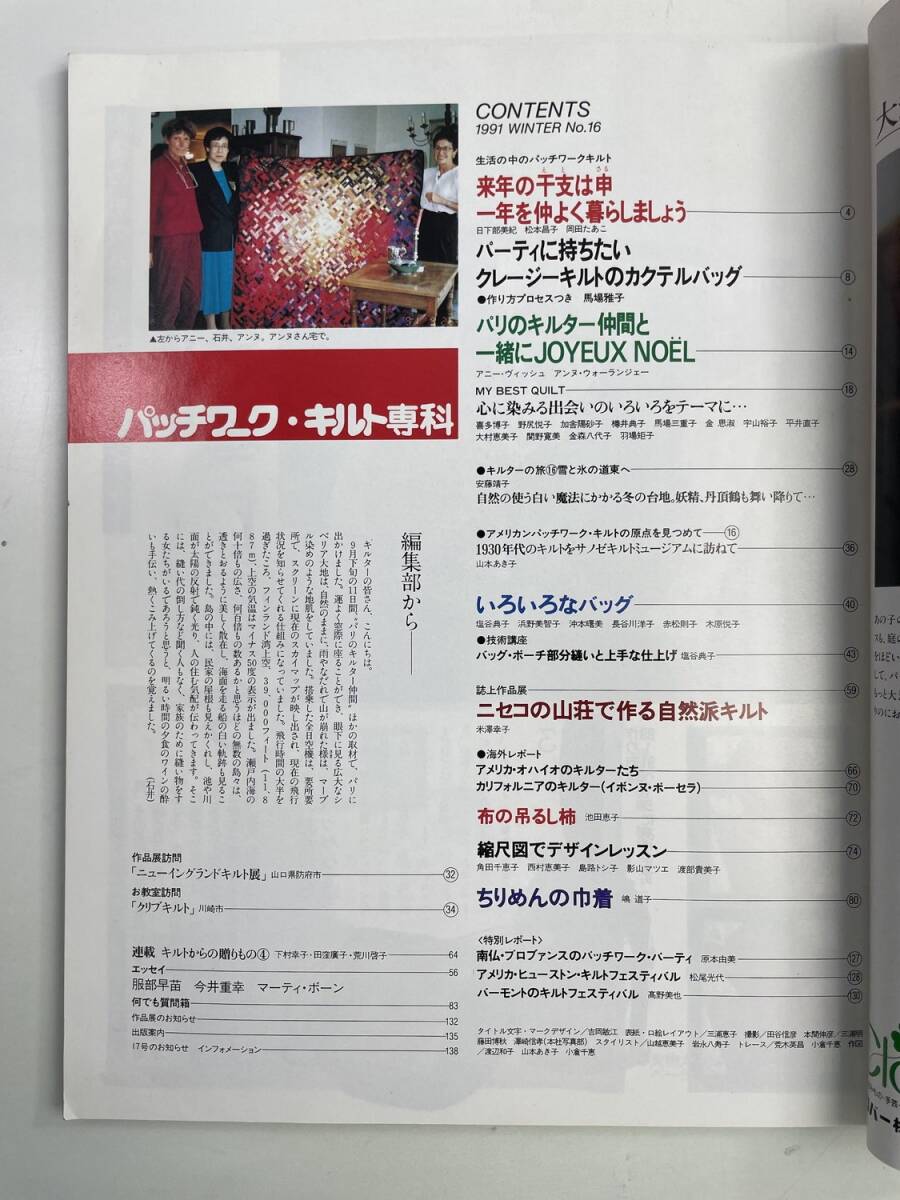 ▲左からアニー、石井、アンヌ。アンヌさん宅で。
パッチワーク・キルト専科
編集部から
キルターの皆さん、こんにちは。
9月下旬の11日間“パリのキルター仲間”ほかの取材で、パリに
出かけました。運よく窓際に座ることができ、眼下に見る広大なシ
ベリア大地は、自然のままに、雨やなだれで山が崩れた様は、マーブ
ル染めのような地肌をしていました。搭乗した全日空機は、要所要
所で、スクリーンに現在のスカイマップが映し出され、現在の飛行
状況を知らせてくれる仕組みになっていました。飛行時間の大半を
過ぎたころ、フィンランド湾上空、39,000フィート(11,8
87m)、上空の気温はマイナス50度の表示が出ました。瀬戸内海の
何十倍もの広さ、何百倍もの数あるかと思うほどの無数の島々は、
透きとおるように美しく散在し、海面を走る船の白い軌跡も見るこ
とができました。島の中には、民家の屋根も見えかくれし、池や川
面が太陽の反射で鈍く光り、人の住む気配が伝わってきます。そこ
には、縫い代の倒し方など聞く人もなく、家族のために縫い物をす
る女たちがいるであろうと思うと、明るい時間の夕食のワインの酔
いも手伝い、熱くこみ上げてくるのを覚えました。
(石井)
作品展訪問
「ニューイングランドキルト展」山口県防府市 32
お教室訪問
「クリブキルト」川崎市 34
連載 キルトからの贈りもの④ 下村幸子・田窪廣子・荒川啓子 64
エッセイ 56
服部早苗 今井重幸 マーティ・ボーン
何でも質問箱 83
作品展のお知らせ 132
出版案内 135
17号のお知らせ インフォメーション 138
CONTENTS
1991 WINTER No.16
生活の中のパッチワークキルト
来年の干支は申
えと さる
一年を仲よく暮らしましょう 4
日下部美紀 松本昌子 岡田たあこ
パーティに持ちたい
クレージーキルトのカクテルバッグ 8
●作り方プロセスつき 馬場雅子
パリのキルター仲間と
一緒にJOYEUX NOËL 14
アニー・ヴィッシュ アンヌ・ウォーランジェー
MY BEST QUILT 18
心に染みる出会いのいろいろをテーマに…
喜多博子 野尻悦子 加舎陽砂子 樽井典子 馬場三重子 金 思淑 宇山裕子 平井直子
大村恵美子 関野寛美 金森八代子 羽場矩子
●キルターの旅⑯雪と氷の道東へ 28
安藤靖子
自然の使う白い魔法にかかる冬の台地。妖精、丹頂鶴も舞い降りて…
●アメリカンパッチワーク・キルトの原点を見つめて ⑯
1930年代のキルトをサノゼキルトミュージアムに訪ねて 36
山本あき子
いろいろなバッグ 40
塩谷典子 浜野美智子 沖本曙美 長谷川洋子 赤松則子 木原悦子
●技術講座
バッグ・ポーチ部分縫いと上手な仕上げ 塩谷典子 43
誌上作品展 59
ニセコの山荘で作る自然派キルト
米澤幸子
●海外レポート
アメリカ・オハイオのキルターたち 66
カリフォルニアのキルター(イボンヌ・ポーセラ) 70
布の吊るし柿 池田恵子 72
縮尺図でデザインレッスン 74
角田千恵子 西村恵美子 島路トシ子 影山マツエ 渡部貴美子
ちりめんの巾着 嶋 道子 80
〈特別レポート〉
南仏・プロブァンスのパッチワーク・パーティ 原本由美 127
アメリカ・ヒューストン・キルトフェスティバル 松尾光代 128
バーモントのキルトフェスティバル 髙野美也 130
タイトル文字・マークデザイン/吉岡敏江 表紙・口絵レイアウト/三浦恵子 撮影/田谷信彦 本間伸彦/三浦明
藤田博秋 澤崎信孝(本社写真部) スタイリスト/山越恵美子 岩永八寿子 トレース/荒木英昌 小倉千恵 作図
/渡辺和子 山本あき子 小倉千恵